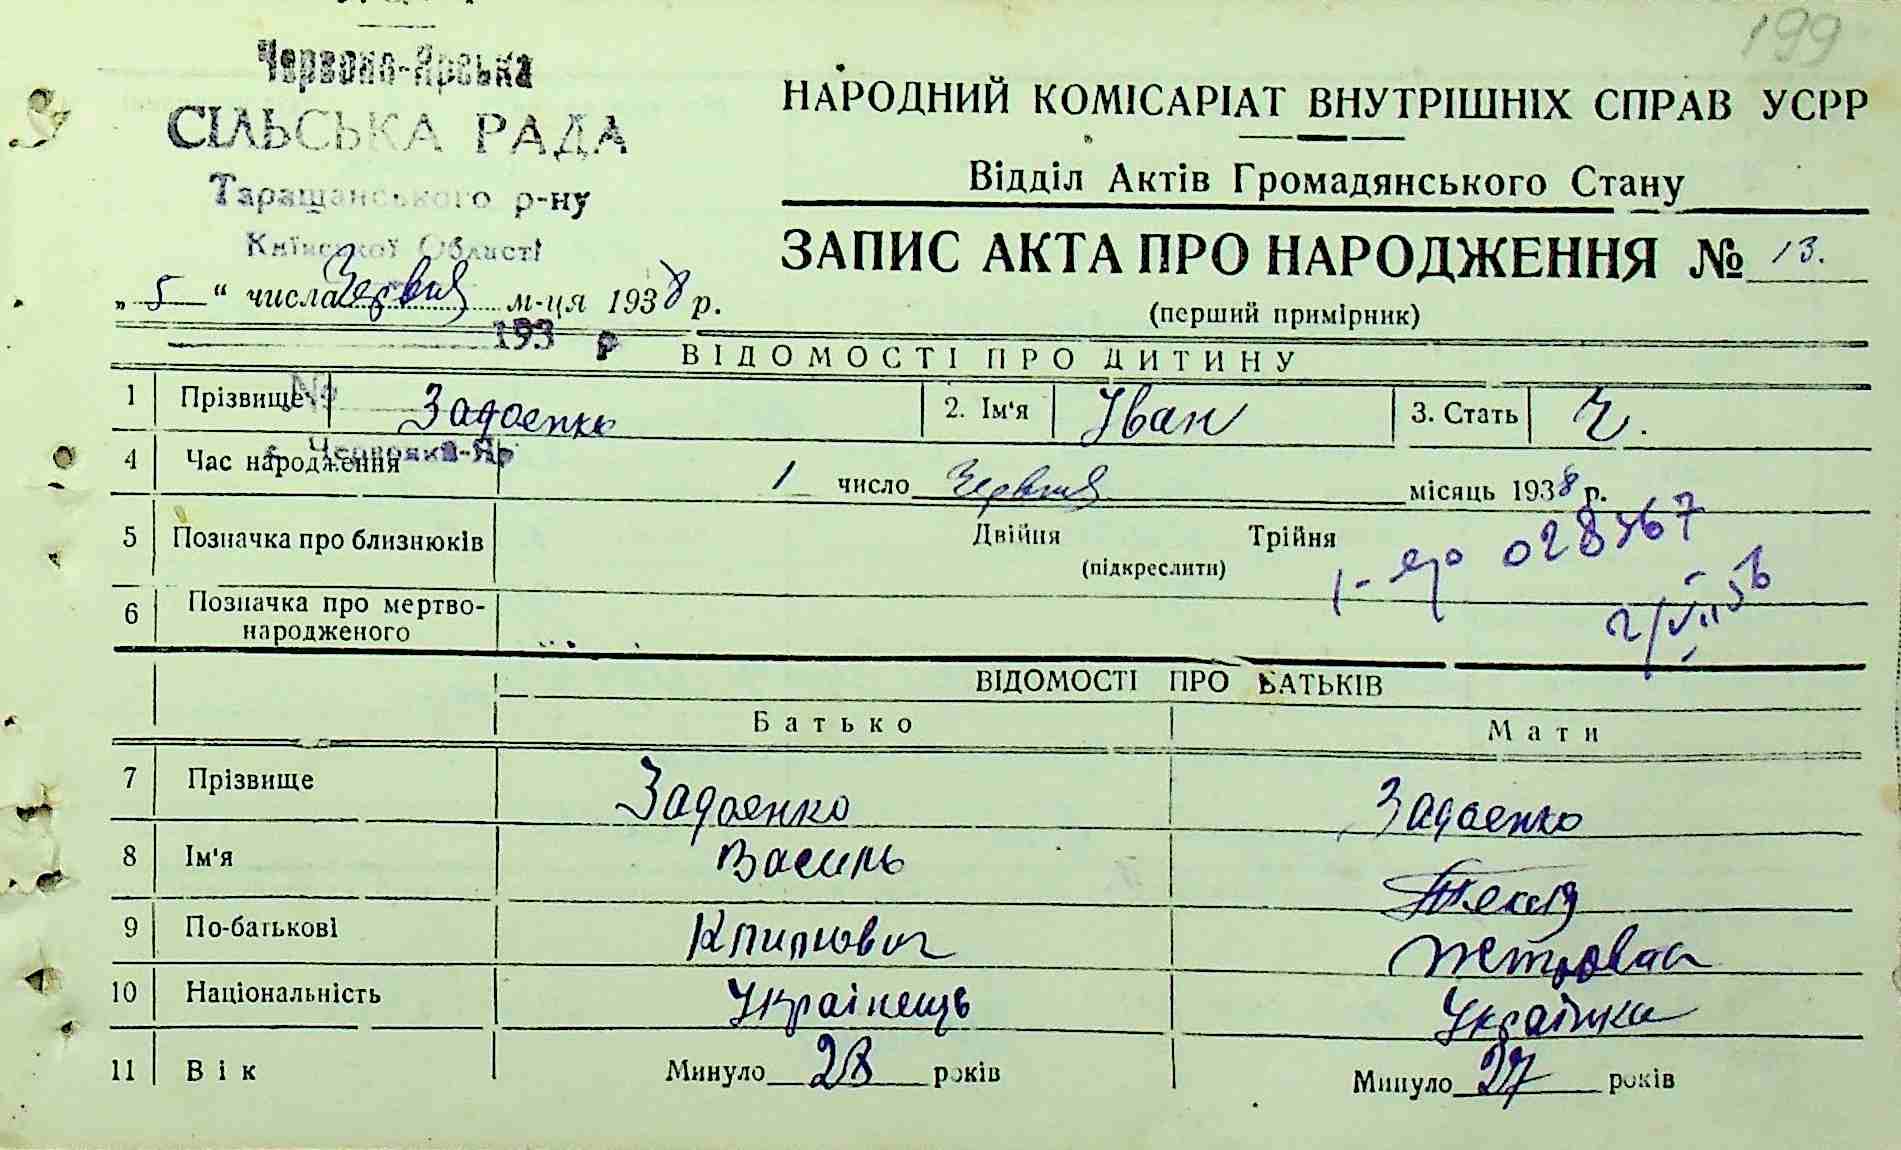 199
Червоно-Ярська
СІЛЬСЬКА РАДА
Таращанського р-ну
Київської Області
НАРОДНИЙ КОМІСАРІАТ ВНУТРІШНІХ СПРАВ УСРР
Відділ Актів Громадянського Стану
ЗАПИС АКТА ПРО НАРОДЖЕННЯ № 13.
(перший примірник)
„ 5 “ числа Червня м-ця 1938 р.
193 р
ВІДОМОСТІ ПРО ДИТИНУ
№
1 Прізвище Задоенко 2. Ім'я Іван 3. Стать Ч.
с. Червоний-Яр
4 Час народження 1 число Червня місяць 1938 р.
5 Позначка про близнюків Двійня Трійня
(підкреслити)
6 Позначка про мертво-
народженого
ВІДОМОСТІ ПРО БАТЬКІВ
Батько Мати
7 Прізвище Задоенко Задоенко
8 Ім'я Василь Текля
9 По-батькові Петровна
10 Національність Українець Українка
11 Вік Минуло 28 років Минуло 27 років